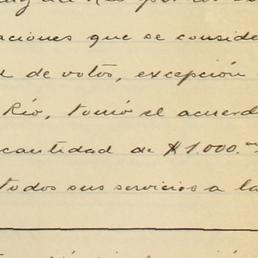 aciones que se conside
d de votos, excepción
Río, tomó el acuerd
cantidad de $1.000.
todos sus servicios a la